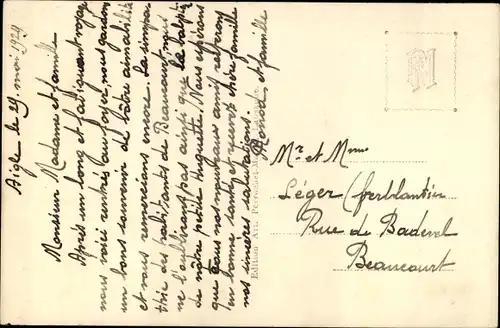 Aigle le 29. mai 1929
Monsieur Madame et famille
Après un long et faisouant voyage
nous voici rentrés au foyer, nous gardons
un bons souvenir de vôtre aimabilité
et vous remercions encore. La simpa-
thie des habitants de Beaucourt nous
ne l'oublirons pas ainsi que la
de nôtre petite Huguette. Nous espérons
que tous nos nouveaux amis resterons
en bonne santé, et recevez chère famille
nos sincères salutations.
Monod et famille
Edition Art. Perrochet
M
Mr et Mme
Léger (ferblantier
Rue de Badevel
Beaucourt